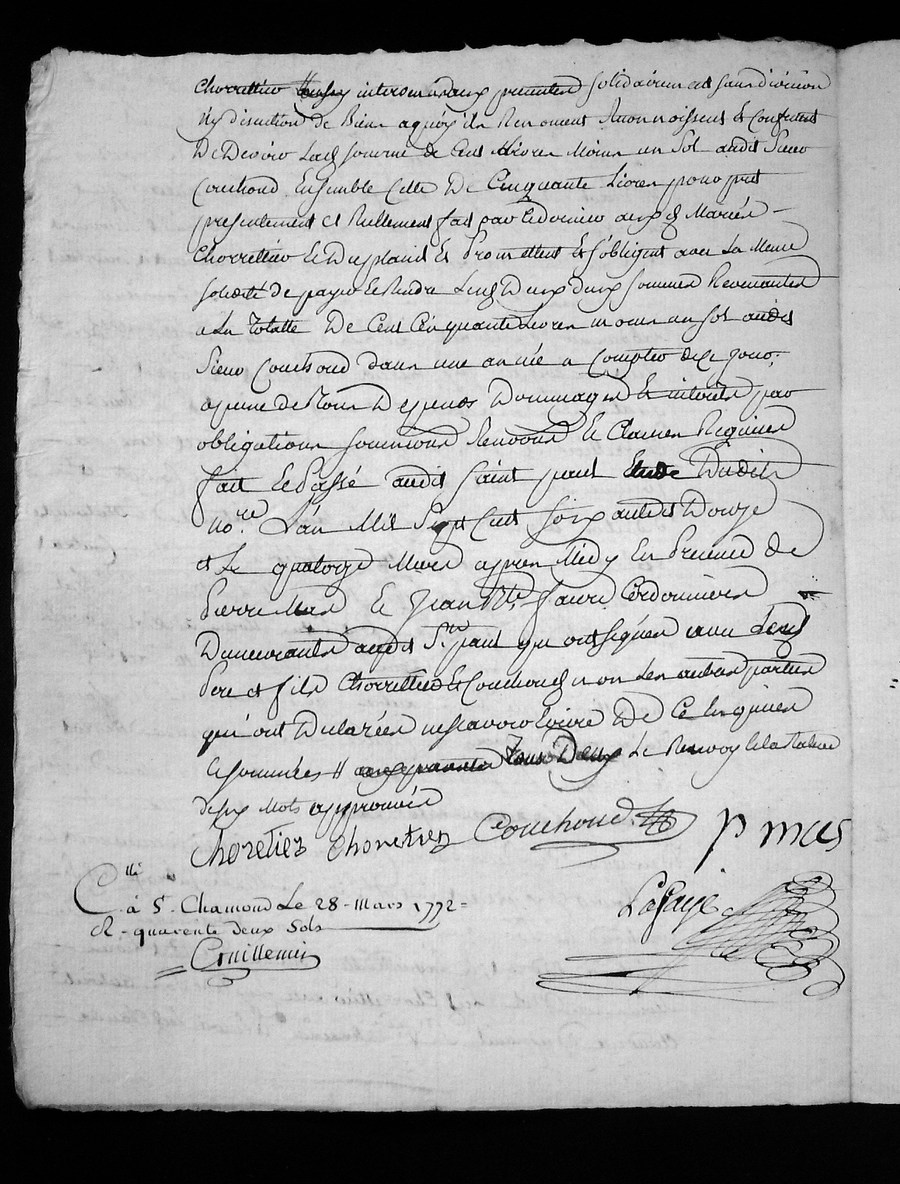 Chorrettier solidairement sans division
Ny discution de Biens a quoy ils Renoncent Reconnoissent Et Confessent
De Devoir Lad somme de Cent Livres Moins un Sol audit Sieur
Couchoud Ensemble Celle De Cinquante Livres pour pret
presentement et Reellement fait par Le dernier auxd Mariés
Chorrettier Et Duplaind Et Promettent Et s'obligent avec La Meme
solidité de payer Et Rendre Lesd Deux sommes Revenantes
a La Totalle De Cent Cinquante Livres moins un sol audit
Sieur Couchoud dans une année a Compter de Ce jour
a peine de Tous Depens Dommages Et interets par
obligations soumissions Renvons Et Clauses Requises
fait Et Passé audit Saint paul Etude Dudit
No.re L'an Mil Sept Cent Soixante et Douze
et Le quatorze Mars apres Midy En Presence de
Pierre Mas Et Jean Bte. faure Cordonniers
Demeurants audit St. paul qui ont signés avec Lesd
Pere et fils Chorrettier Et Couchoud non Les autres parties
qui ont Declarées ne scavoir Ecrire De Ce Enquises
Et sommées Le Renvoy Et La Rature
deux Mots approuvés
Choretier Chorettier Couchoud P. mas
C.lli
à St. Chamond Le 28 Mars 1772
R. quarente deux Sols
Lafaye